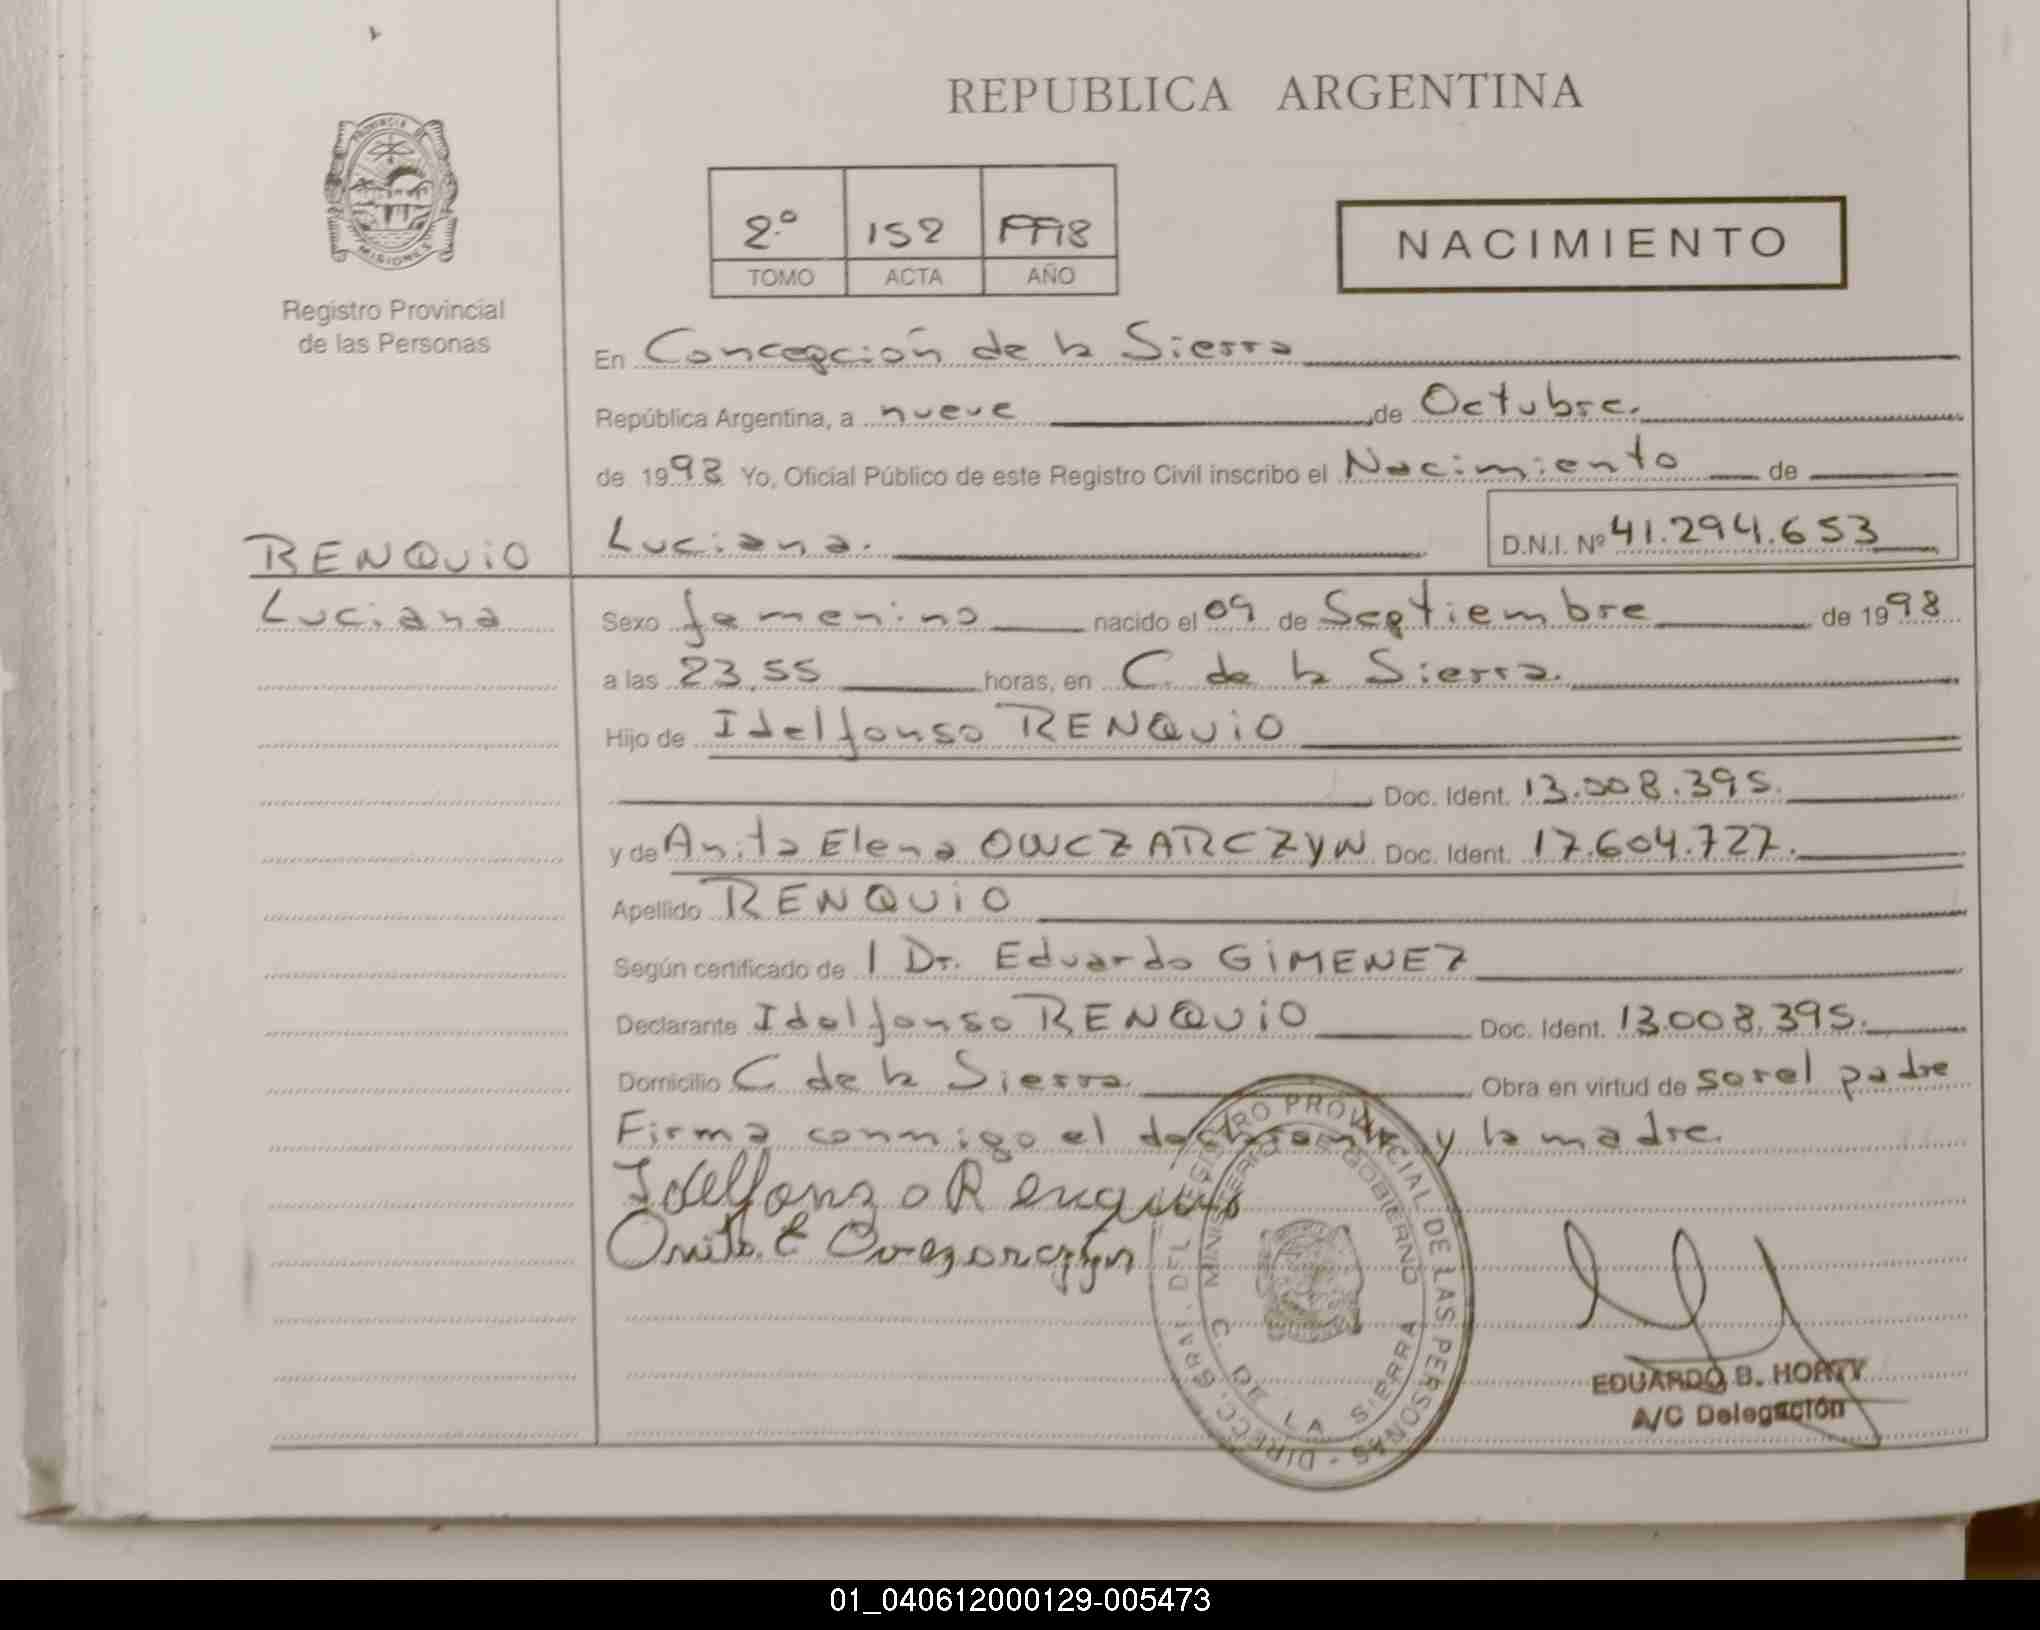 REPUBLICA ARGENTINA
PROVINCIA DE MISIONES
Registro Provincial
de las Personas
2.º 152 1998
TOMO ACTA AÑO
NACIMIENTO
En Concepción de la Sierra
República Argentina, a nueve de Octubre.
de 1998 Yo, Oficial Público de este Registro Civil inscribo el Nacimiento de
RENQUiO Luciana. D.N.I. Nº 41.294.653
Luciana
Sexo femenino nacido el 09 de Septiembre de 1998
a las 23,55 horas, en C. de la Sierra.
Hijo de Idelfonso RENQUiO
Doc. Ident. 13.008.395.
y de Anita Elena OWCZARCZYN Doc. Ident. 17.604.727.
Apellido RENQUiO
Según certificado de l Dr. Eduardo GiMENEZ
Declarante Idelfonso RENQUiO Doc. Ident. 13.008.395.
Domicilio C de la Sierra Obra en virtud de ser el padre
Firma conmigo el declarante y la madre.
Idelfonso Renquio
Anita E Owczarczyn
DIRECC. GRAL. DEL REGISTRO PROVINCIAL DE LAS PERSONAS -
MINISTERIO DE GOBIERNO
C. DE LA SIERRA
EDUARDO B. HORTY
A/C Delegación
01_040612000129-005473